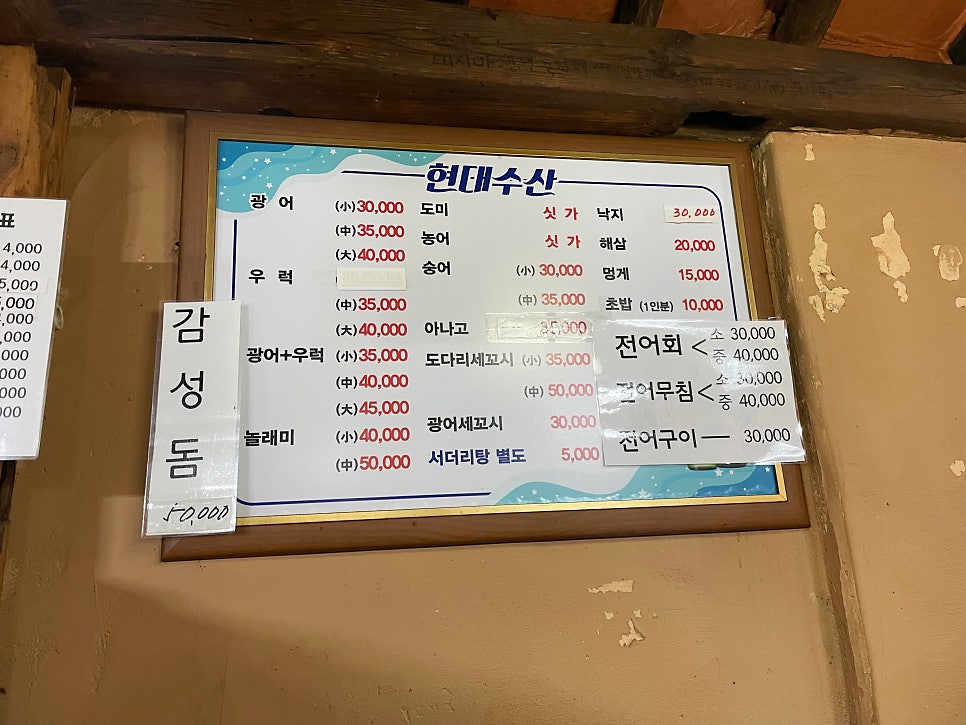 현대수산
광어 (小) 30,000
(中) 35,000
(大) 40,000
우럭
(中) 35,000
(大) 40,000
광어+우럭 (小) 35,000
(中) 40,000
(大) 45,000
놀래미 (小) 40,000
(中) 50,000
도미 싯가
농어 싯가
숭어 (小) 30,000
(中) 35,000
아나고 35,000
도다리세꼬시 (小) 35,000
(中) 50,000
광어세꼬시 30,000
서더리탕 별도 5,000
낙지 30,000
해삼 20,000
멍게 15,000
초밥 (1인분) 10,000
전어회 < 소 30,000
중 40,000
전어무침 < 소 30,000
중 40,000
전어구이 — 30,000
감성돔
50,000
표
4,000
4,000
5,000
5,000
,000
,000
000
000
000
000